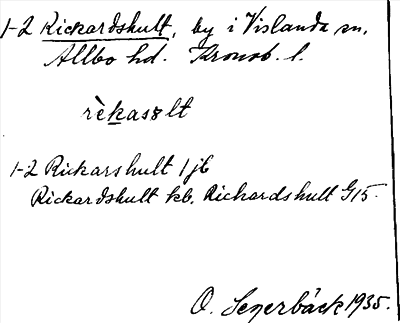 1-2 Rickardshult, by i Vislanda sn,
Allbo hd. Kronob. l.
rèkasɞlt
1-2 Rickarshult 1 jb
Rickardshult kb. Richardshult G15.
O. Segerbäck 1935.